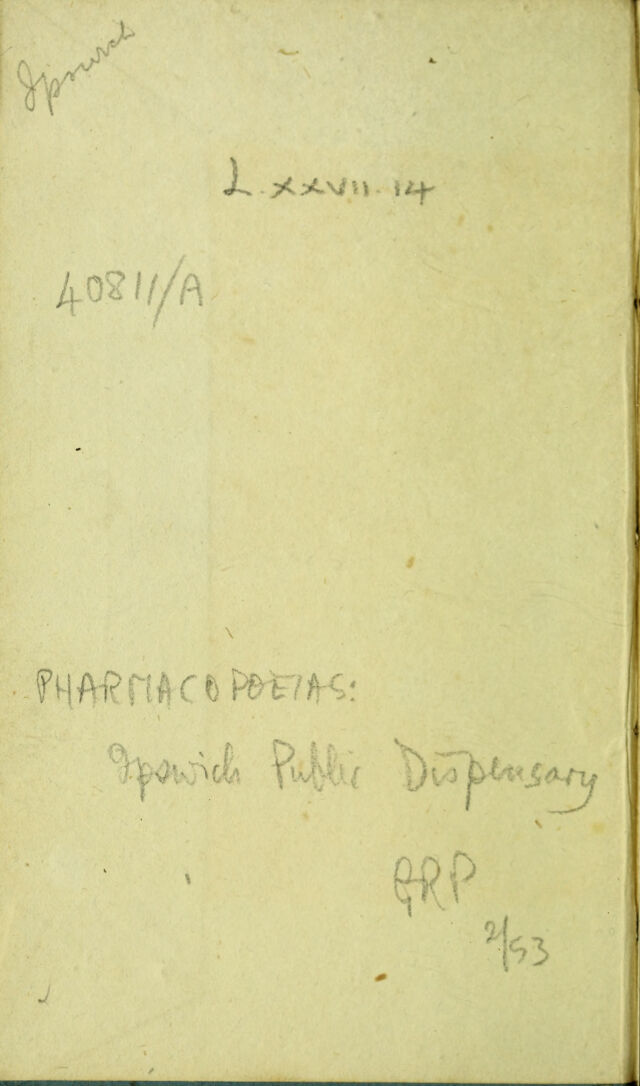 Ipswich
L.XXVII.14
40811/A
PHARMACOPOEIAS:
Ipswich Public Dispensary
GRP
2/53